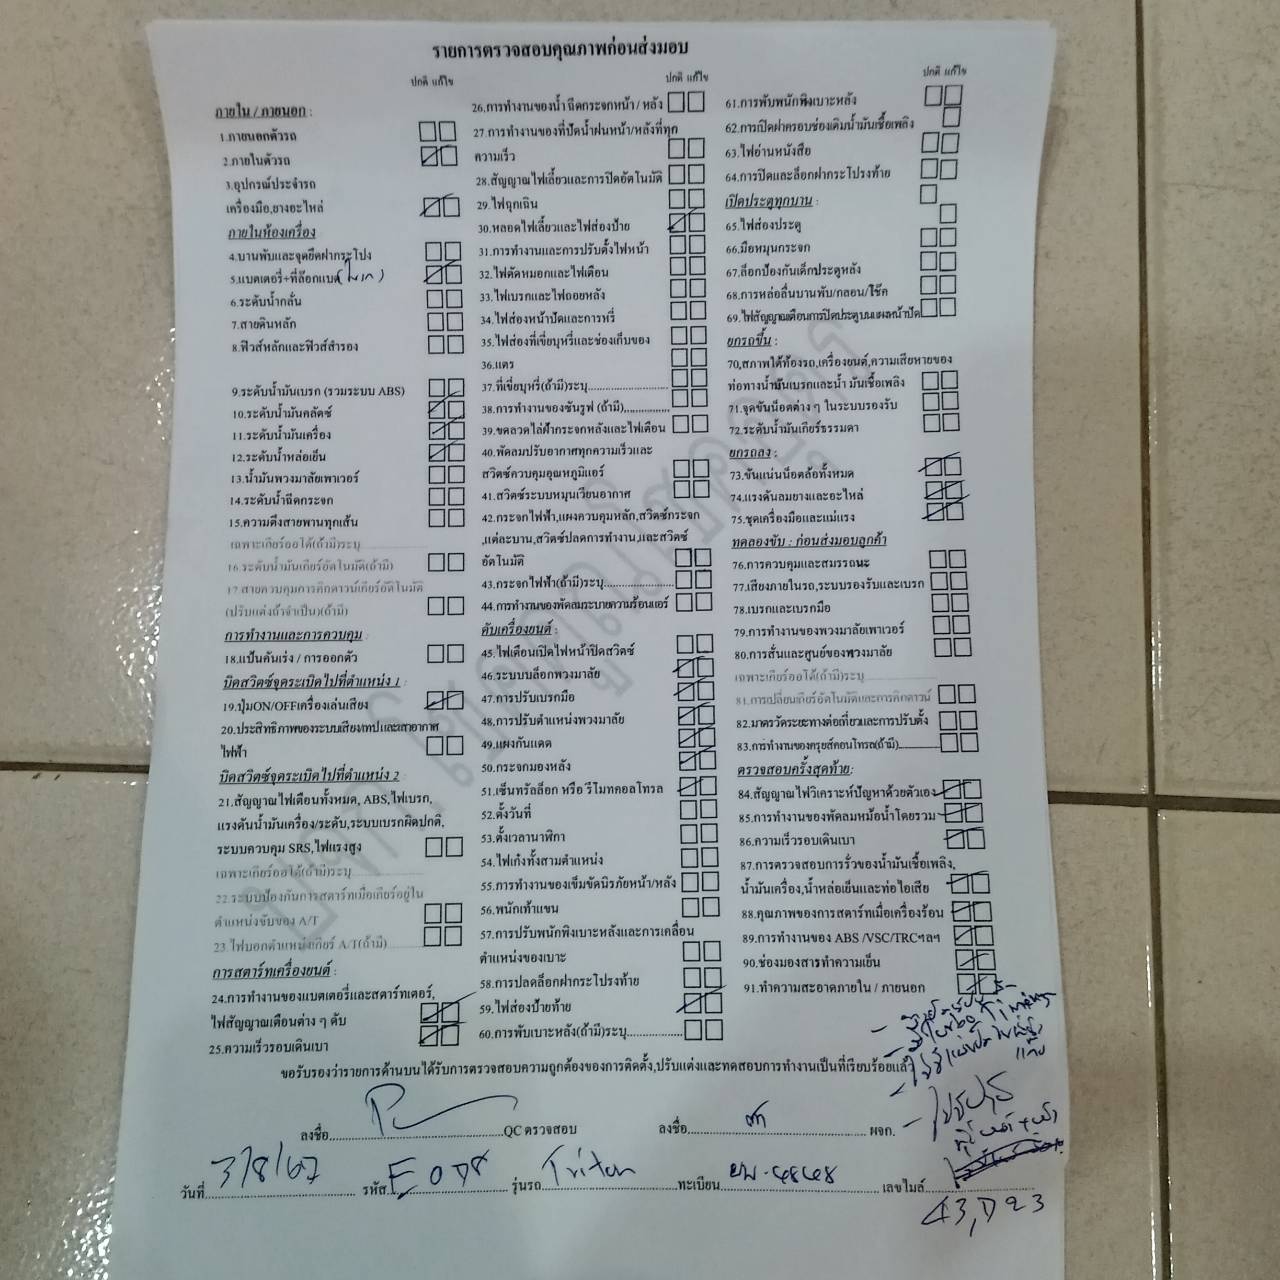 รายการตรวจสอบคุณภาพก่อนส่งมอบ
ปกติ แก้ไข
ภายใน / ภายนอก :
1.ภายนอกตัวรถ
2.ภายในตัวรถ
3.อุปกรณ์ประจำรถ
เครื่องมือ,ยางอะไหล่
ภายในห้องเครื่อง
4.บานพับและจุดยึดฝากระโปง
5.แบตเตอรี่+ที่ล๊อกแบต
6.ระดับน้ำกลั่น
7.สายดินหลัก
8.ฟิวส์หลักและฟิวส์สำรอง
9.ระดับน้ำมันเบรก (รวมระบบ ABS)
10.ระดับน้ำมันคลัตซ์
11.ระดับน้ำมันเครื่อง
12.ระดับน้ำหล่อเย็น
13.น้ำมันพวงมาลัยเพาเวอร์
14.ระดับน้ำฉีดกระจก
15.ความตึงสายพานทุกเส้น
เฉพาะเกียร์ออโต้(ถ้ามี)ระบุ
16.ระดับน้ำมันเกียร์อัตโนมัติ(ถ้ามี)
17.สายควบคุมการคิกดาวน์เกียร์อัตโนมัติ
(ปรับแต่งถ้าจำเป็น)(ถ้ามี)
การทำงานและการควบคุม :
18.แป้นคันเร่ง / การออกตัว
บิดสวิตซ์จุดระเบิดไปที่ตำแหน่ง 1 :
19.ปุ่มON/OFFเครื่องเล่นเสียง
20.ประสิทธิภาพของระบบเสียง/เทป และเสาอากาศ
ไฟฟ้า
บิดสวิตซ์จุดระเบิดไปที่ตำแหน่ง 2 :
21.สัญญาณไฟเตือนทั้งหมด, ABS,ไฟเบรก,
แรงดันน้ำมันเครื่อง/ระดับ,ระบบเบรกผิดปกติ,
ระบบควบคุม SRS,ไฟแรงสูง
เฉพาะเกียร์ออโต้(ถ้ามี)ระบุ
22.ระบบป้องกันการสตาร์ทเมื่อเกียร์อยู่ใน
ตำแหน่งขับของ A/T
23.ไฟบอกตำแหน่งเกียร์ A/T(ถ้ามี)
การสตาร์ทเครื่องยนต์ :
24.การทำงานของแบตเตอรี่และสตาร์ทเตอร์,
ไฟสัญญาณเตือนต่าง ๆ ดับ
25.ความเร็วรอบเดินเบา
ปกติ แก้ไข
26.การทำงานของน้ำ ฉีดกระจกหน้า / หลัง
27.การทำงานของที่ปัดน้ำฝนหน้า/หลังที่ทุก
ความเร็ว
28.สัญญาณไฟเลี้ยวและการปิดอัตโนมัติ
29.ไฟฉุกเฉิน
30.หลอดไฟเลี้ยวและไฟส่องป้าย
31.การทำงานและการปรับตั้งไฟหน้า
32.ไฟตัดหมอกและไฟเตือน
33.ไฟเบรกและไฟถอยหลัง
34.ไฟส่องหน้าปัดและการหรี่
35.ไฟส่องที่เขี่ยบุหรี่และช่องเก็บของ
36.แตร
37.ที่เขี่ยบุหรี่(ถ้ามี)ระบุ
38.การทำงานของซันรูฟ (ถ้ามี)
39.ขดลวดไล่ฝ้ากระจกหลังและไฟเตือน
40.พัดลมปรับอากาศทุกความเร็วและ
สวิตซ์ควบคุมอุณหภูมิแอร์
41.สวิตซ์ระบบหมุนเวียนอากาศ
42.กระจกไฟฟ้า,แผงควบคุมหลัก,สวิตซ์กระจก
,แต่ละบาน,สวิตซ์ปลดการทำงาน,และสวิตซ์
อัตโนมัติ
43.กระจกไฟฟ้า(ถ้ามี)ระบุ
44.การทำงานของพัดลมระบายความร้อนแอร์
ดับเครื่องยนต์ :
45.ไฟเตือนเปิดไฟหน้าปิดสวิตซ์
46.ระบบบล็อกพวงมาลัย
47.การปรับเบรกมือ
48.การปรับตำแหน่งพวงมาลัย
49.แผงกันแดด
50.กระจกมองหลัง
51.เซ็นทรัลล็อก หรือ รีโมทคอลโทรล
52.ตั้งวันที่
53.ตั้งเวลานาฬิกา
54.ไฟเก๋งทั้งสามตำแหน่ง
55.การทำงานของเข็มขัดนิรภัยหน้า/หลัง
56.พนักเท้าแขน
57.การปรับพนักพิงเบาะหลังและการเคลื่อน
ตำแหน่งของเบาะ
58.การปลดล็อกฝากระโปรงท้าย
59.ไฟส่องป้ายท้าย
60.การพับเบาะหลัง(ถ้ามี)ระบุ
ปกติ แก้ไข
61.การพับพนักพิงเบาะหลัง
62.การเปิดฝาครอบช่องเติมน้ำมันเชื้อเพลิง
63.ไฟอ่านหนังสือ
64.การปิดและล็อกฝากระโปรงท้าย
เปิดประตูทุกบาน :
65.ไฟส่องประตู
66.มือหมุนกระจก
67.ล็อกป้องกันเด็กประตูหลัง
68.การหล่อลื่นบานพับ/กลอน/โช๊ค
69.ไฟสัญญาณเตือนการปิดประตูบนแผงหน้าปัด
ยกรถขึ้น :
70,สภาพใต้ท้องรถ,เครื่องยนต์,ความเสียหายของ
ท่อทางน้ำมันเบรกและน้ำ มันเชื้อเพลิง
71.จุดขันน็อตต่าง ๆ ในระบบรองรับ
72.ระดับน้ำมันเกียร์ธรรมดา
ยกรถลง :
73.ขันแน่นน็อตล้อทั้งหมด
74.แรงดันลมยางและอะไหล่
75.ชุดเครื่องมือและแม่แรง
ทดลองขับ : ก่อนส่งมอบลูกค้า
76.การควบคุมและสมรรถนะ
77.เสียงภายในรถ,ระบบรองรับและเบรก
78.เบรกและเบรกมือ
79.การทำงานของพวงมาลัยเพาเวอร์
80.การสั่นและศูนย์ของพวงมาลัย
เฉพาะเกียร์ออโต้(ถ้ามี)ระบุ
81.การเปลี่ยนเกียร์อัตโนมัติและการคิกดาวน์
82.มาตรวัดระยะทางต่อเที่ยวและการปรับตั้ง
83.การทำงานของครุยส์คอนโทรล(ถ้ามี)
ตรวจสอบครั้งสุดท้าย:
84.สัญญาณไฟวิเคราะห์ปัญหาด้วยตัวเอง
85.การทำงานของพัดลมหม้อน้ำโดยรวม
86.ความเร็วรอบเดินเบา
87.การตรวจสอบการรั่วของน้ำมันเชื้อเพลิง,
น้ำมันเครื่อง,น้ำหล่อเย็นและท่อไอเสีย
88.คุณภาพของการสตาร์ทเมื่อเครื่องร้อน
89.การทำงานของ ABS /VSC/TRCฯลฯ
90.ช่องมองสารทำความเย็น
91.ทำความสะอาดภายใน / ภายนอก
ขอรับรองว่ารายการด้านบนได้รับการตรวจสอบความถูกต้องของการติดตั้ง,ปรับแต่งและทดสอบการทำงานเป็นที่เรียบร้อยแล้ว
ลงชื่อ QC ตรวจสอบ ลงชื่อ ผจก.
วันที่ 3/8/67 รหัส รุ่นรถ Triton ทะเบียน เลขไมล์